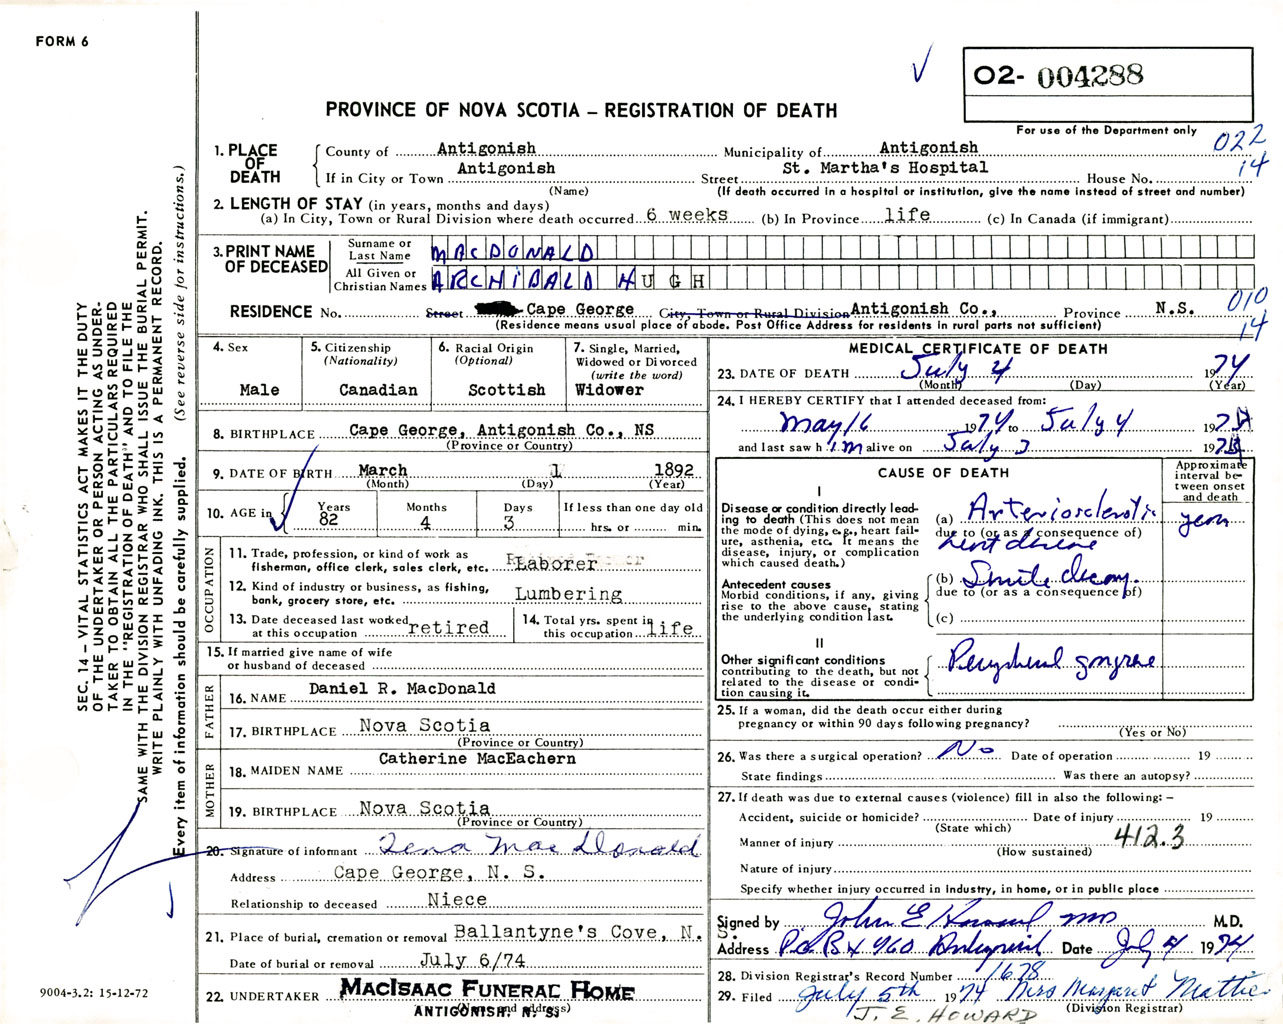 FORM 6
O2- 004288
PROVINCE OF NOVA SCOTIA – REGISTRATION OF DEATH
For use of the Department only
022
14
1. PLACE OF DEATH
County of Antigonish Municipality of Antigonish
If in City or Town Antigonish Street St. Martha's Hospital House No.
(Name) (If death occurred in a hospital or institution, give the name instead of street and number)
2. LENGTH OF STAY (in years, months and days)
(a) In City, Town or Rural Division where death occurred 6 weeks (b) In Province life (c) In Canada (if immigrant)
3. PRINT NAME OF DECEASED
Surname or Last Name MACDONALD
All Given or Christian Names ARCHIBALD HUGH
RESIDENCE No. Street Cape George City, Town or Rural Division Antigonish Co., Province N.S.
010
14
(Residence means usual place of abode. Post Office Address for residents in rural parts not sufficient)
4. Sex
Male
5. Citizenship
(Nationality)
Canadian
6. Racial Origin
(Optional)
Scottish
7. Single, Married,
Widowed or Divorced
(write the word)
Widower
8. BIRTHPLACE Cape George, Antigonish Co., NS
(Province or Country)
9. DATE OF BIRTH March 1 1892
(Month) (Day) (Year)
10. AGE in Years 82 Months 4 Days 3 If less than one day old
hrs. or min.
OCCUPATION
11. Trade, profession, or kind of work as
fisherman, office clerk, sales clerk, etc. Laborer
12. Kind of industry or business, as fishing,
bank, grocery store, etc. Lumbering
13. Date deceased last worked
at this occupation retired
14. Total yrs. spent in
this occupation life
15. If married give name of wife
or husband of deceased
FATHER
16. NAME Daniel R. MacDonald
17. BIRTHPLACE Nova Scotia
(Province or Country)
MOTHER
18. MAIDEN NAME Catherine MacEachern
19. BIRTHPLACE Nova Scotia
(Province or Country)
20. Signature of informant Tena MacDonald
Address Cape George, N. S.
Relationship to deceased Niece
21. Place of burial, cremation or removal Ballantyne's Cove, N. S.
Date of burial or removal July 6/74
22. UNDERTAKER MACISAAC FUNERAL HOME
ANTIGONISH, N. S.
(Name and address)
MEDICAL CERTIFICATE OF DEATH
23. DATE OF DEATH July 4 1974
(Month) (Day) (Year)
24. I HEREBY CERTIFY that I attended deceased from:
May 16 1974 to July 4 1974
and last saw him alive on July 3 1974
CAUSE OF DEATH
Approximate interval between onset and death
I
Disease or condition directly leading to death (This does not mean the mode of dying, e.g., heart failure, asthenia, etc. It means the disease, injury, or complication which caused death.)
(a) Arteriosclerotic
due to (or as a consequence of)
heart disease
years
Antecedent causes
Morbid conditions, if any, giving rise to the above cause, stating the underlying condition last.
(b) Senile decay.
due to (or as a consequence of)
(c)
II
Other significant conditions
contributing to the death, but not related to the disease or condition causing it.
Peripheral gangrene
25. If a woman, did the death occur either during
pregnancy or within 90 days following pregnancy?
(Yes or No)
26. Was there a surgical operation? No Date of operation 19
State findings Was there an autopsy?
27. If death was due to external causes (violence) fill in also the following: –
Accident, suicide or homicide? Date of injury 19
(State which)
Manner of injury 412.3
(How sustained)
Nature of injury
Specify whether injury occurred in industry, in home, or in public place
Signed by John E Howard MD M.D.
Address P.O. Bx 960 Antigonish Date July 4 1974
28. Division Registrar's Record Number 1678
29. Filed July 5th 1974 Mrs Margaret Mattie
(Division Registrar)
J. E. HOWARD
SEC. 14 - VITAL STATISTICS ACT MAKES IT THE DUTY
OF THE UNDERTAKER OR PERSON ACTING AS UNDER-
TAKER TO OBTAIN ALL THE PARTICULARS REQUIRED
IN THE "REGISTRATION OF DEATH" AND TO FILE THE
SAME WITH THE DIVISION REGISTRAR WHO SHALL ISSUE THE BURIAL PERMIT.
WRITE PLAINLY WITH UNFADING INK. THIS IS A PERMANENT RECORD.
Every item of information should be carefully supplied. (See reverse side for instructions.)
9004-3.2: 15-12-72